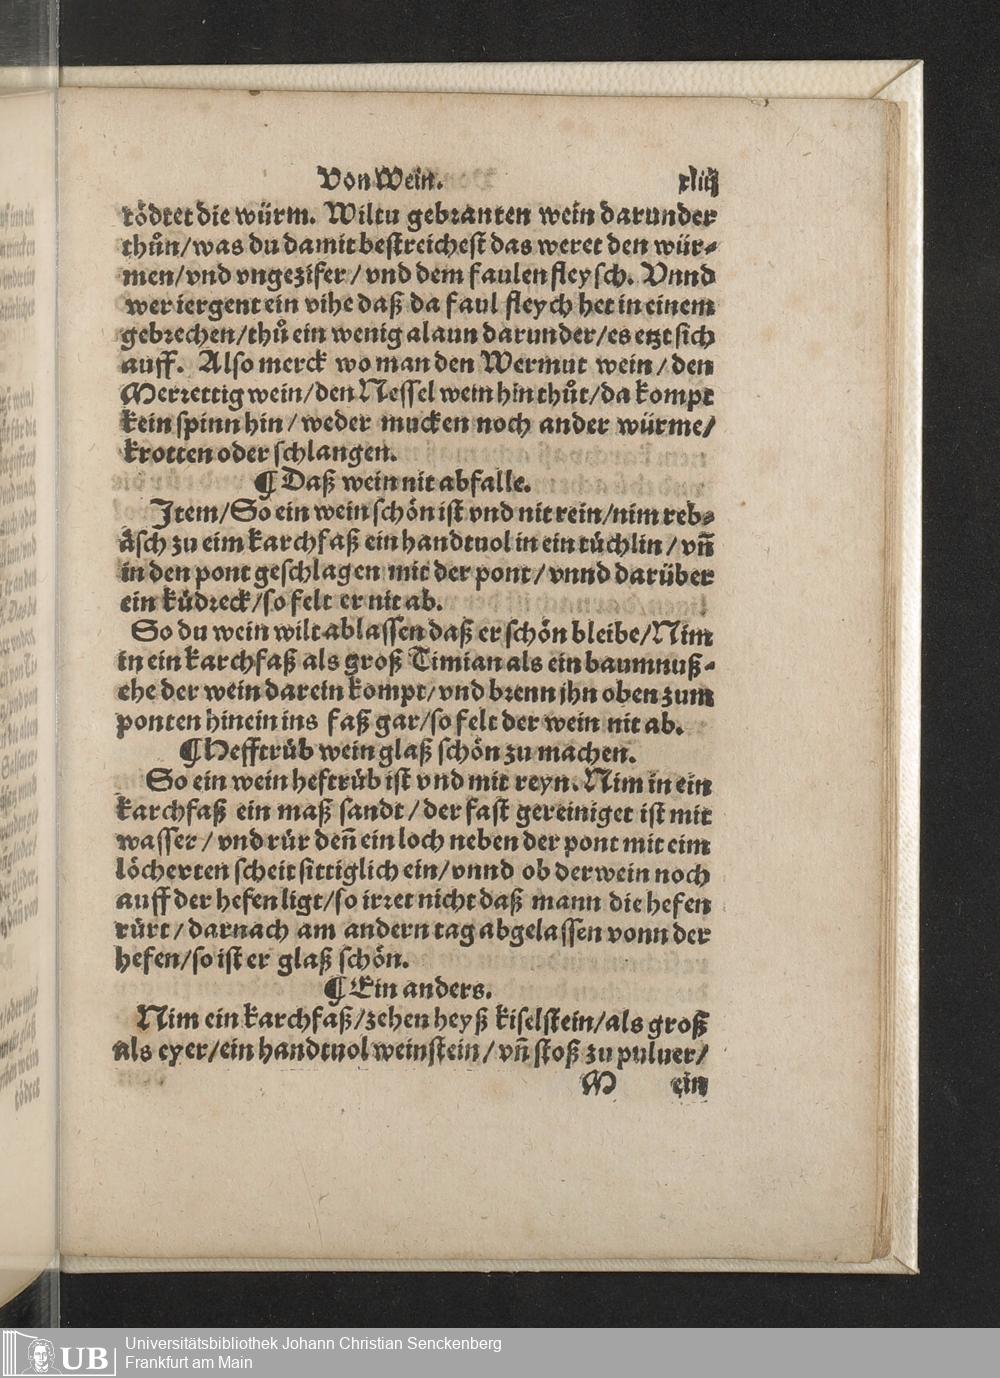 Von Wein. xliij
tödtet die würm. Wiltu gebranten wein darunder
thůn/was du damit bestreichest das weret den wür-
men/vnd vngezifer/vnd dem faulen fleysch. Vnnd
wer iergent ein vihe daß da faul fleych het in einem
gebrechen/thů ein wenig alaun darunder/es etzt sich
auff. Also merck wo man den Wermut wein/den
Merrettig wein/den Nessel wein hin thůt/da kompt
kein spinn hin/weder mucken noch ander würme/
krotten oder schlangen.
¶ Daß wein nit abfalle.
Item/So ein wein schön ist vnd nit rein/nim reb-
äsch zu eim karchfaß ein handtuol in ein tüchlin/vñ
in den pont geschlagen mit der pont/vnnd darüber
ein küdreck/so felt er nit ab.
So du wein wilt ablassen daß er schön bleibe/Nim
in ein karchfaß als groß Timian als ein baumnuß-
ehe der wein darein kompt/vnd brenn jhn oben zum
ponten hinein ins faß gar/so felt der wein nit ab.
¶ Hefftrüb wein glaß schön zu machen.
So ein wein heftrüb ist vnd mit reyn. Nim in ein
karchfaß ein maß sandt/der fast gereiniget ist mit
wasser/vnd rür deñ ein loch neben der pont mit eim
löcherten scheit sittiglich ein/vnnd ob der wein noch
auff der hefen ligt/so irret nicht daß mann die hefen
rürt/darnach am andern tag abgelassen vonn der
hefen/so ist er glaß schön.
¶ Ein anders.
Nim ein karchfaß/zehen heyß kiselstein/als groß
als eyer/ein handtuol weinstein/vñ stoß zu puluer/
M ein
UB
Universitätsbibliothek Johann Christian Senckenberg
Frankfurt am Main